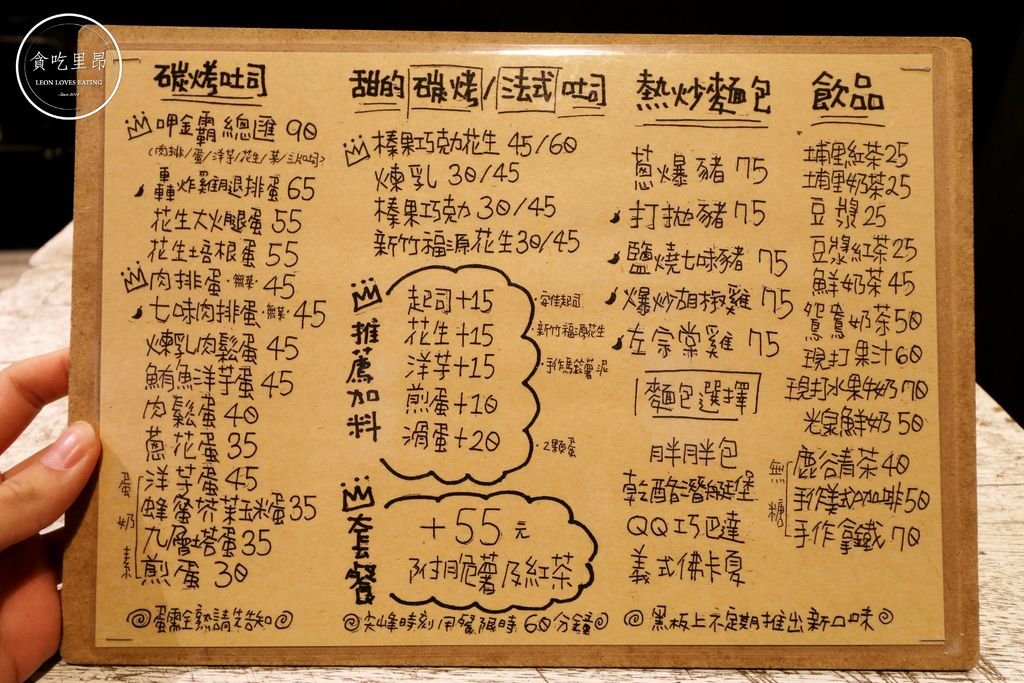 貪吃里昂
LEON LOVES EATING
Since 2014
碳烤吐司
呷金霸總匯 90
(肉排/蛋/洋芋/花生/菜/三片吐司)
轟炸雞腿排蛋 65
花生火腿蛋 55
花生培根蛋 55
肉排蛋·無菜·45
七味肉排蛋·無菜·45
煉乳肉鬆蛋 45
鮪魚洋芋蛋 45
肉鬆蛋 40
蔥花蛋 35
蛋奶素
洋芋蛋 45
蜂蜜芥茉玉米蛋 35
九層塔蛋 35
煎蛋 30
蛋需全熟請先告知
甜的 碳烤/法式 吐司
榛果巧克力花生 45/60
煉乳 30/45
榛果巧克力 30/45
新竹福源花生 30/45
推薦加料
起司+15
·安佳起司
花生+15
·新竹福源花生
洋芋+15
·手作馬鈴薯泥
煎蛋+10
滑蛋+20
·2顆蛋
套餐
+55元
附脆薯及紅茶
尖峰時刻用餐限時60分鐘
熱炒麵包
蔥爆豬 75
打拋豬 75
鹽燒七味豬 75
爆炒胡椒雞 75
左宗棠雞 75
麵包選擇
胖胖包
乾酪潛艇堡
QQ巧巴達
義式佛卡夏
黑板上不定期推出新口味
飲品
埔里紅茶 25
埔里奶茶 25
豆漿 25
豆漿紅茶 25
鮮奶茶 45
鴛鴦奶茶 50
現打果汁 60
現打水果牛奶 70
光泉鮮奶 50
無糖
鹿谷青茶 40
手作美式咖啡 50
手作拿鐵 70